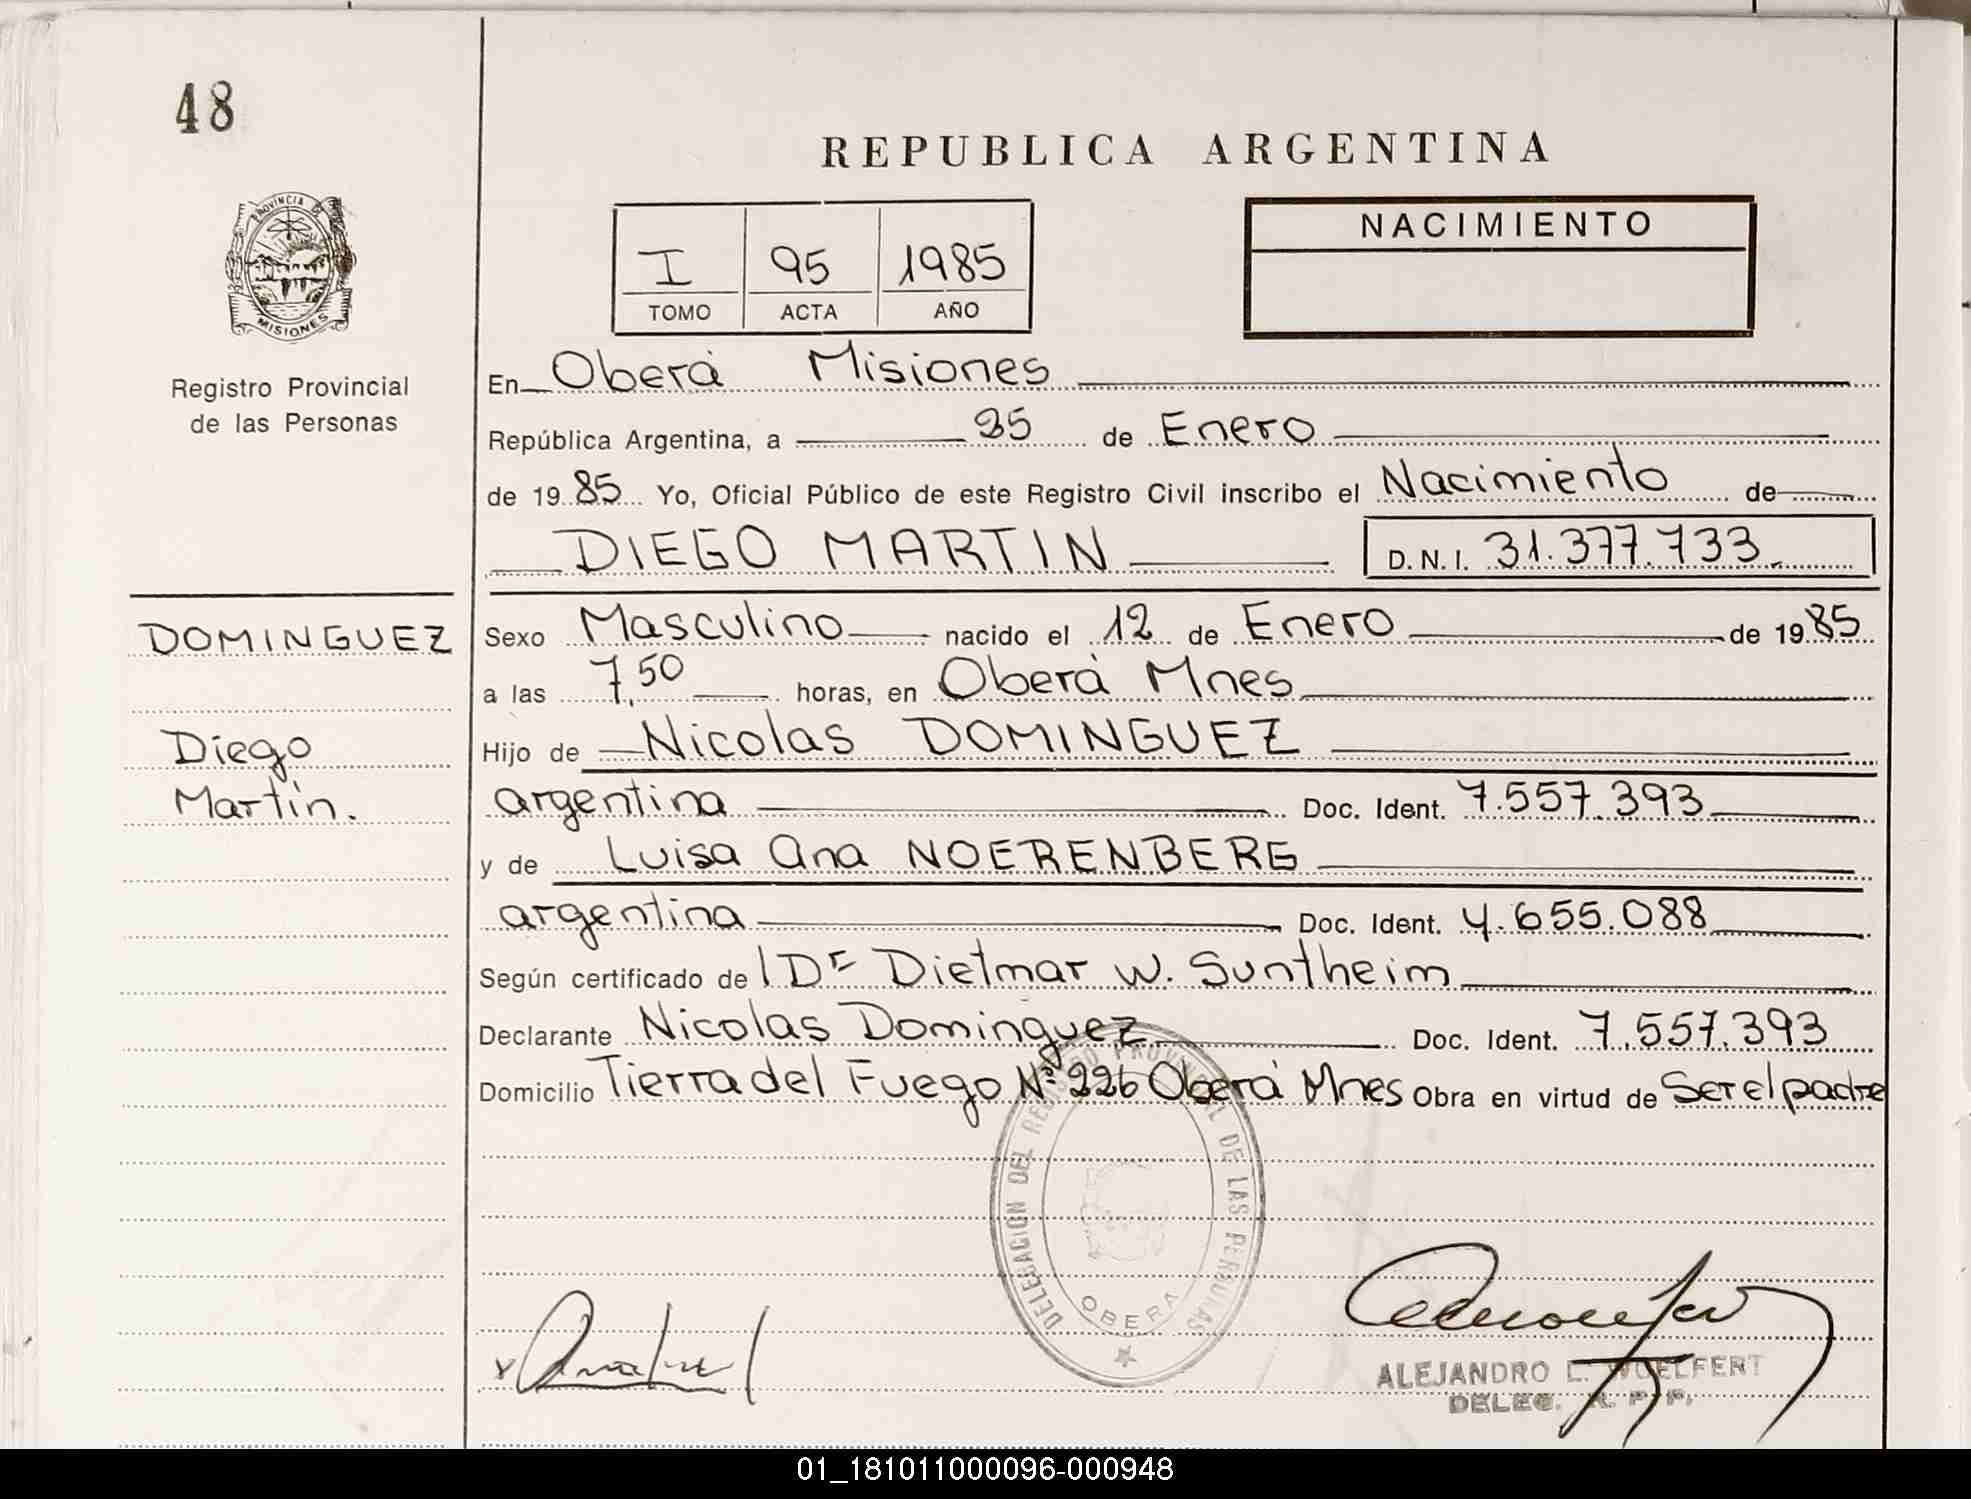 48
REPUBLICA ARGENTINA
PROVINCIA DE
MISIONES
Registro Provincial
de las Personas
I 95 1985
TOMO ACTA AÑO
NACIMIENTO
En Oberá Misiones
República Argentina, a 25 de Enero
de 19 85 Yo, Oficial Público de este Registro Civil inscribo el Nacimiento de
DIEGO MARTIN D.N.I. 31.377.733
DOMINGUEZ
Diego
Martín.
Sexo Masculino nacido el 12 de Enero de 19 85
a las 7,50 horas, en Oberá Mnes
Hijo de Nicolas DOMINGUEZ
argentina Doc. Ident. 7.557.393
y de Luisa Ana NOERENBERG
argentina Doc. Ident. 4.655.088
Según certificado de l Dr Dietmar W. Suntheim
Declarante Nicolas Dominguez Doc. Ident. 7.557.393
Domicilio Tierra del Fuego Nº 226 Oberá Mnes Obra en virtud de Ser el padre
DELEGACION DEL REGISTRO PROVINCIAL DE LAS PERSONAS
OBERA
ALEJANDRO L. WOELFERT
DELEG. R. P. P.
01_181011000096-000948